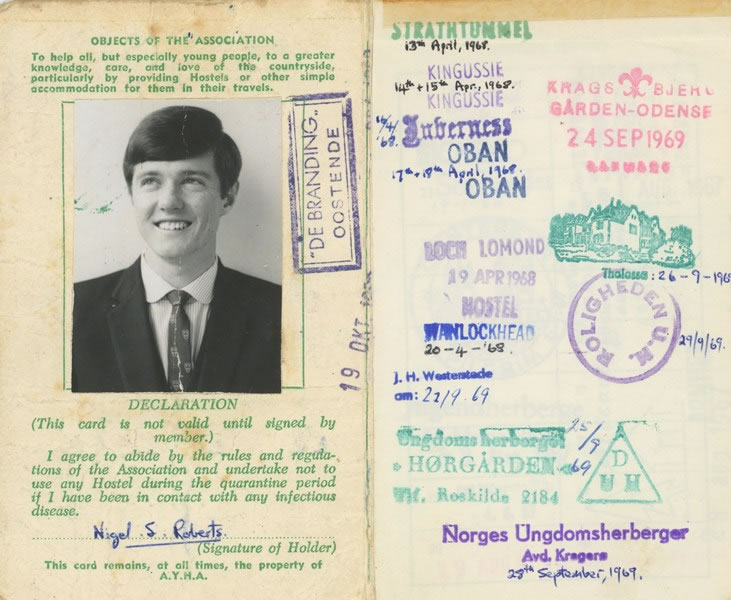 OBJECTS OF THE ASSOCIATION
To help all, but especially young people, to a greater
knowledge, care, and love of the countryside,
particularly by providing Hostels or other simple
accommodation for them in their travels.
"DE BRANDING"
OOSTENDE
19 OKT
DECLARATION
(This card is not valid until signed by
member.)
I agree to abide by the rules and regula-
tions of the Association and undertake not to
use any Hostel during the quarantine period
if I have been in contact with any infectious
disease.
Nigel S. Roberts.
(Signature of Holder)
This card remains, at all times, the property of
A.Y.H.A.
STRATHTUMMEL
13th April, 1968.
KINGUSSIE
14th + 15th Apr., 1968.
KINGUSSIE
16/4/
'68.
Inverness
OBAN
17th + 18th April, 1968.
OBAN
LOCH LOMOND
19 APR 1968
HOSTEL
WANLOCKHEAD
20-4-'68.
J. H. Westerstede
am: 22/9.69
Ungdomsherberget
HØRGÅRDEN
Tlf. Roskilde 2184
25/9
69
D
U H
KRAGSBJERG
GÅRDEN-ODENSE
24 SEP 1969
DANMARK
Thalassa: 26-9-196
ROLIGHEDEN U.H.
29/9/69.
Norges Ungdomsherberger
Avd. Kragerø
28th September, 1969.